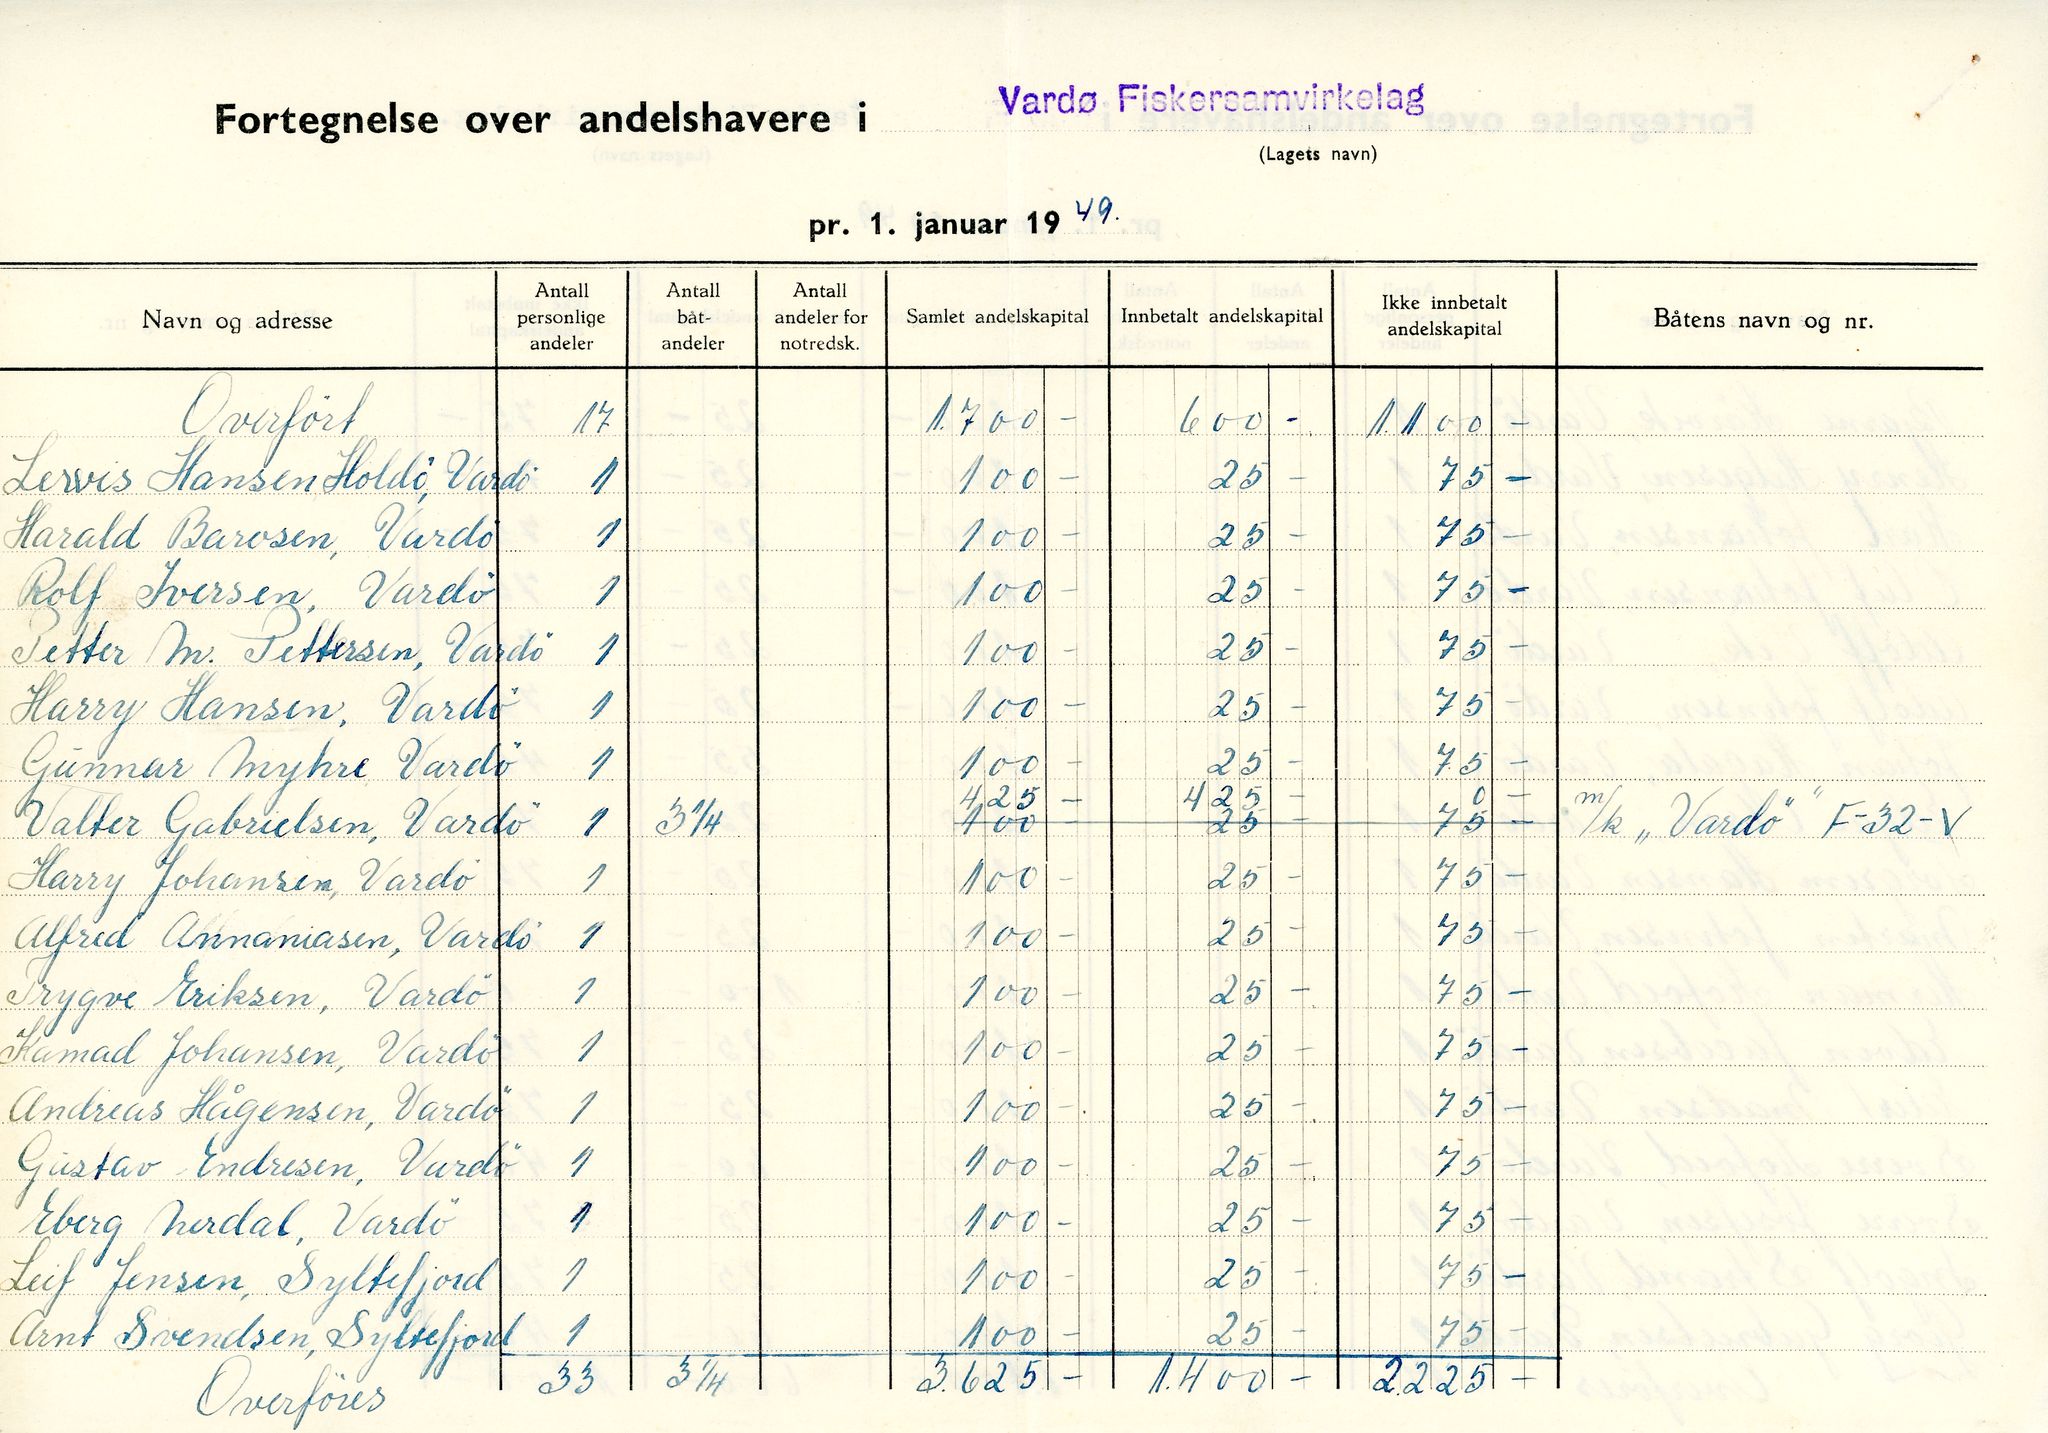 Fortegnelse over andelshavere i Vardø Fiskersamvirkelag
(Lagets navn)
pr. 1. januar 19 49.
Navn og adresse Antall personlige andeler Antall båt-andeler Antall andeler for notredsk. Samlet andelskapital Innbetalt andelskapital Ikke innbetalt andelskapital Båtens navn og nr.
Overfört 17 1.700 - 600 - 1.100 -
Lervis Hansen Holdö, Vardö 1 100 - 25 - 75 -
Harald Barosen, Vardö 1 100 - 25 - 75 -
Rolf Iversen, Vardö 1 100 - 25 - 75 -
Petter M. Pettersen, Vardö 1 100 - 25 - 75 -
Harry Hansen, Vardö 1 100 - 25 - 75 -
Gunnar Myhre Vardö 1 100 - 25 - 75 -
425 - 425 - 0 -
Valter Gabrielsen, Vardö 1 3 1/4 100 - 25 - 75 - m/k „Vardö" F-32-V
Harry Johansen, Vardö 1 100 - 25 - 75 -
Alfred Annaniasen, Vardö 1 100 - 25 - 75 -
Trygve Eriksen, Vardö 1 100 - 25 - 75 -
Johansen, Vardö 1 100 - 25 - 75 -
Andreas Hågensen, Vardö 1 100 - 25 - 75 -
Gustav Endresen, Vardö 1 100 - 25 - 75 -
Eberg Nerdal, Vardö 1 100 - 25 - 75 -
Leif Jensen, Syltefjord 1 100 - 25 - 75 -
Arnt Svendsen, Syltefjord 1 100 - 25 - 75 -
Overföres 33 3 1/4 3.625 - 1.400 - 2.225 -